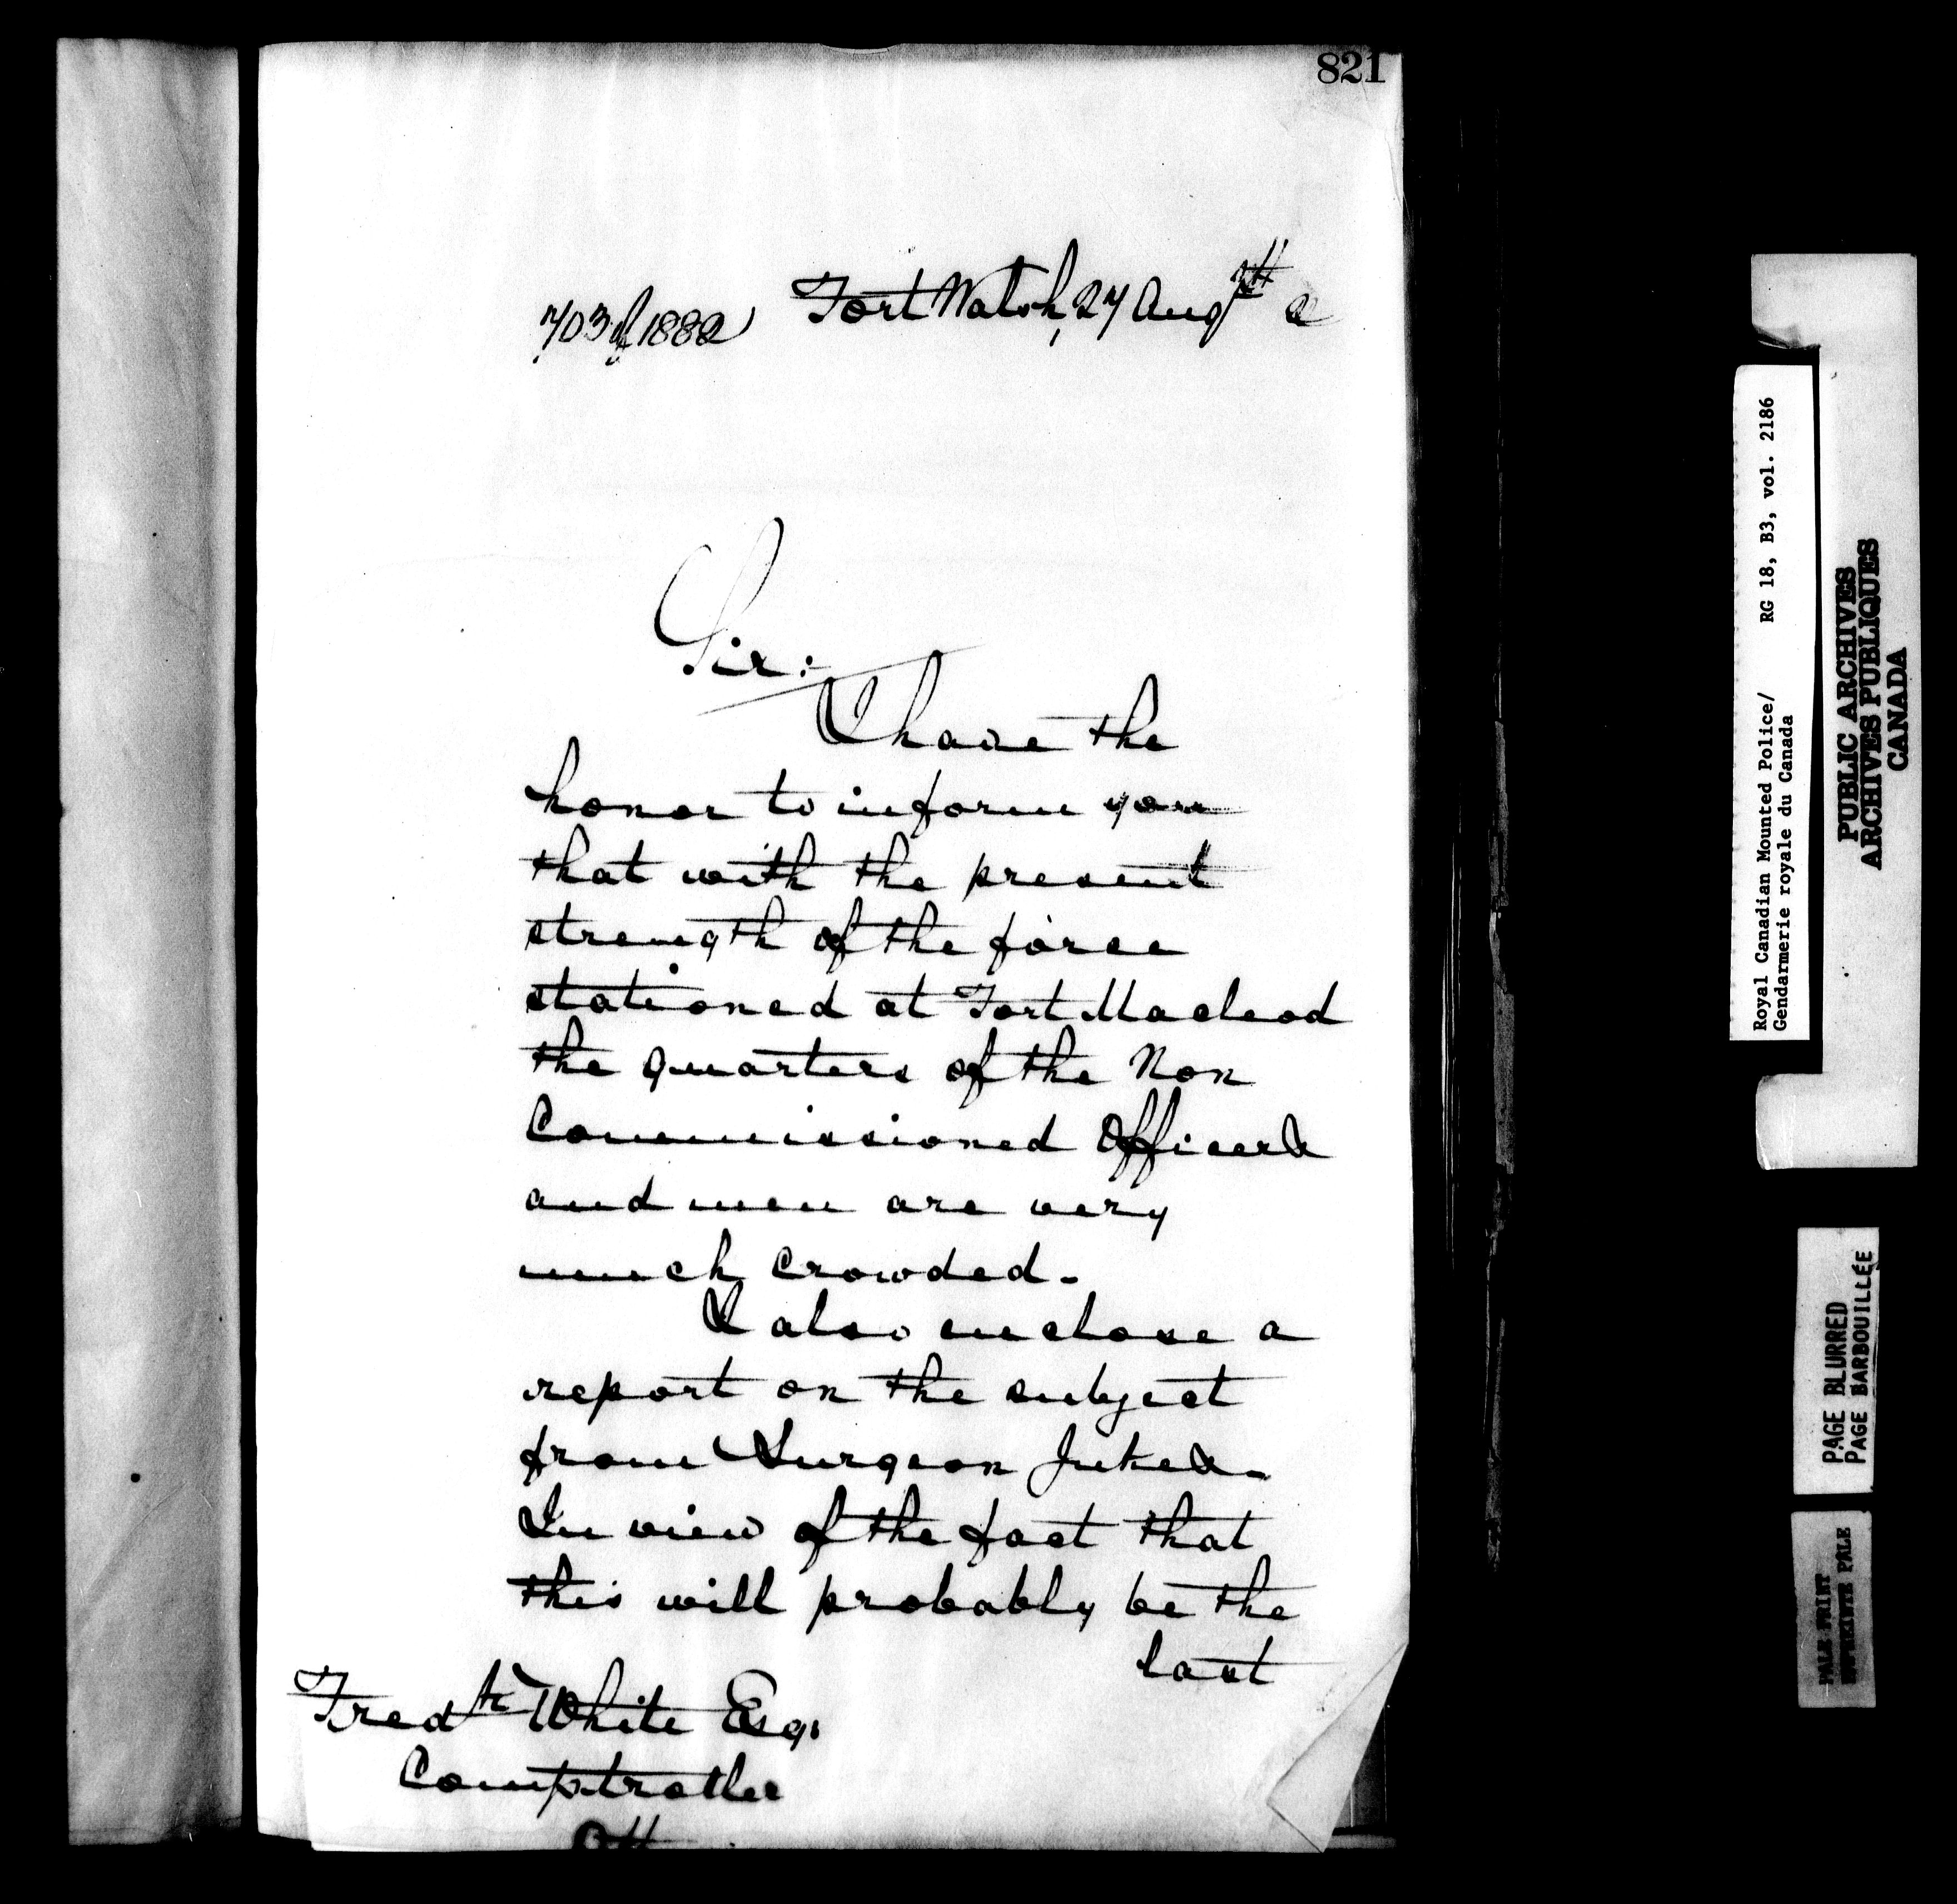 821
703 of 1882
Fort Walsh, 27 Augth 2
Sir:
I have the
honor to inform you
that with the present
strength of the force
stationed at Fort Macleod
the quarters of the Non
Commissioned Officers
and men are very
much crowded.
I also enclose a
report on the subject
from Surgeon Jukes.
In view of the fact that
this will probably be the
last
Fredk White Esq.
Comptroller
Royal Canadian Mounted Police/ RG 18, B3, vol. 2186
Gendarmerie royale du Canada
PUBLIC ARCHIVES
ARCHIVES PUBLIQUES
CANADA
PAGE BLURRED
PAGE BARBOUILLÉE
PALE PRINT
PALE